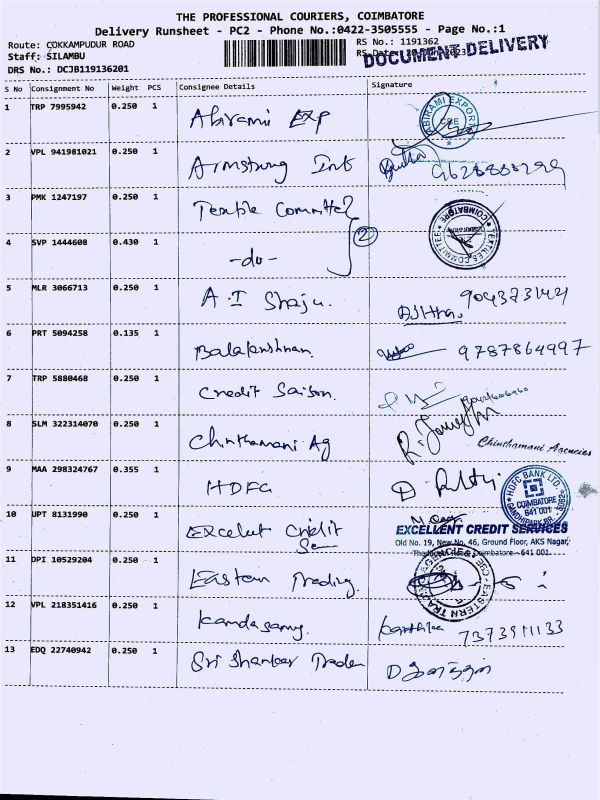 THE PROFESSIONAL COURIERS, COIMBATORE
Delivery Runsheet - PC2 - Phone No.:0422-3505555 - Page No.:1
Route: COKKAMPUDUR ROAD
RS No.: 1191362
Staff: SILAMBU
DOCUMENT DELIVERY
DRS No.: DCJB119136201
S No Consignment No Weight PCS Consignee Details Signature
1 TRP 7995942 0.250 1 Abirami Exp ABIRAMI EXPORT CBE
2 VPL 941981021 0.250 1 Armstrong Int
3 PMK 1247197 0.250 1 Textile Committee TEXTILES COMMITTEE COIMBATORE
4 SVP 1444608 0.430 1 -do- 2
5 MLR 3066713 0.250 1 A.I Shaju
6 PRT 5094258 0.135 1 Balakrishnan 9787864997
7 TRP 5880468 0.250 1 Credit Saison
8 SLM 322314070 0.250 1 Chinthamani Ag Chinthamani Agencies
9 MAA 298324767 0.355 1 HDFC HDFC BANK LTD. COIMBATORE 641 001
10 UPT 8131990 0.250 1 Excelent Credit Se EXCELLENT CREDIT SERVICES
Old No. 19, New No. 46, Ground Floor, AKS Nagar,
Coimbatore - 641 001
11 DPI 10529204 0.250 1 Eastern Trading EASTERN TRADING AGENCIES CBE
12 VPL 218351416 0.250 1 Kandasamy
13 EDQ 22740942 0.250 1 Sri Shankar Trader